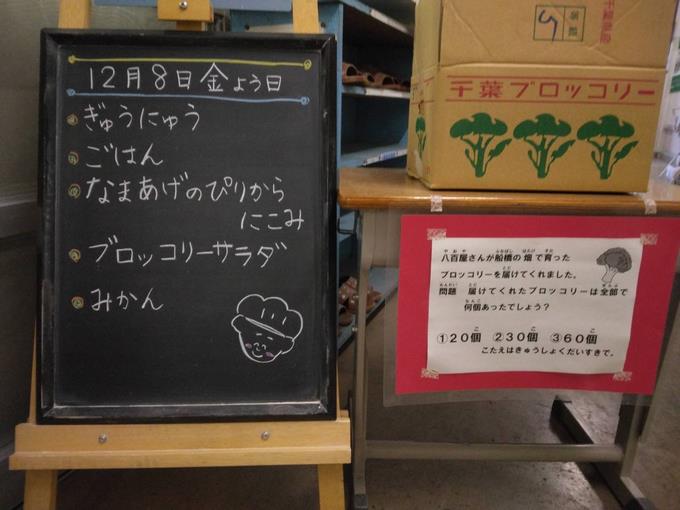 12月8日金よう日
ぎゅうにゅう
ごはん
なまあげのぴりから
にこみ
ブロッコリーサラダ
みかん
千葉ブロッコリー
八百屋さんが船橋の畑で育った
ブロッコリーを届けてくれました。
問題 届けてくれたブロッコリーは全部で
何個あったでしょう?
①20個 ②30個 ③60個
こたえはきゅうしょくだいすきで。